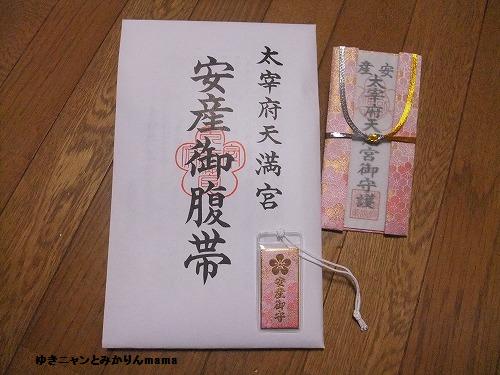 太宰府天満宮
安産御腹帯
安産
太宰府天
宮御守護
安産御守
ゆきニャンとみかりんmama